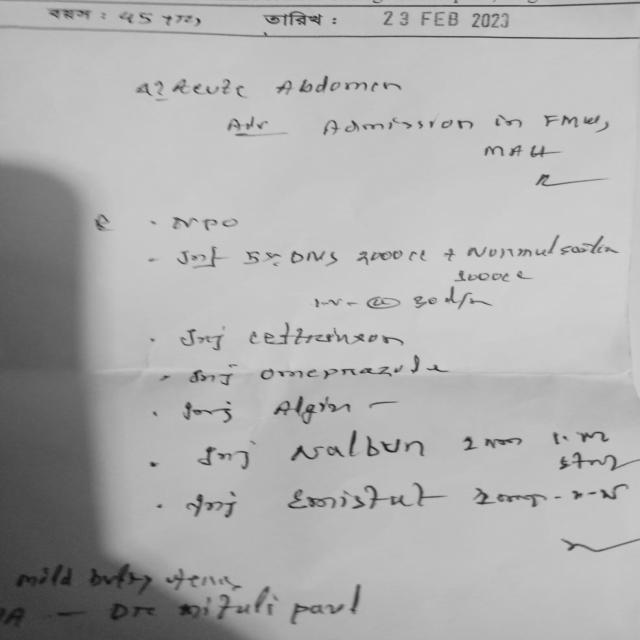 বয়স : ৭৫ তারিখ : 23 FEB 2023
Acute Abdomen
Adv Admission in FMW,
MAH
NPO
Inf 5% DNS 2000cc + Normal saline
1000cc
IV - @ 30 d/m
Inj ceftriaxon
Inj omeprazole
Inj Algin -
Inj Nalbun 2 I.M
stat
Inj Emistat
mild
Dr mituli paul